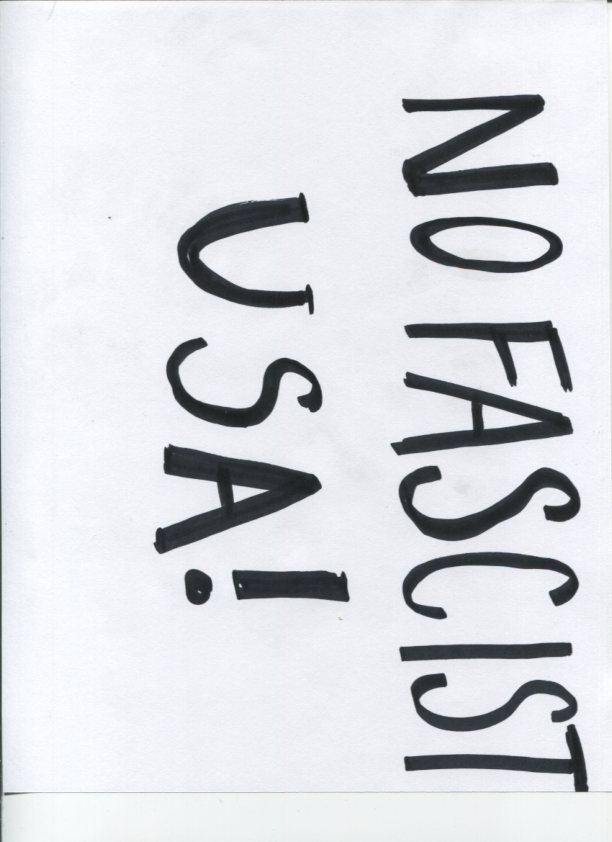 NO FASCIST
USA!